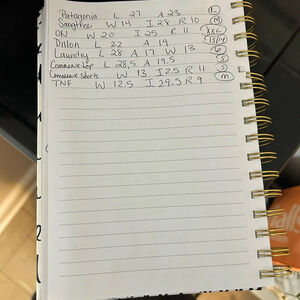 Patagonia L 27 A 23 L
W 14 I 28 R 10 M
ON W 20 I 25 R 11 XXL
Dillon L 22 A 19 13/14
Laundry L 28 A 17 W 13 6
Commense top L 28,5 A 19.5 S
Commense Shorts W 13 I 2.5 R 11 S
TNF W 12.5 I 29.5 R 9 M